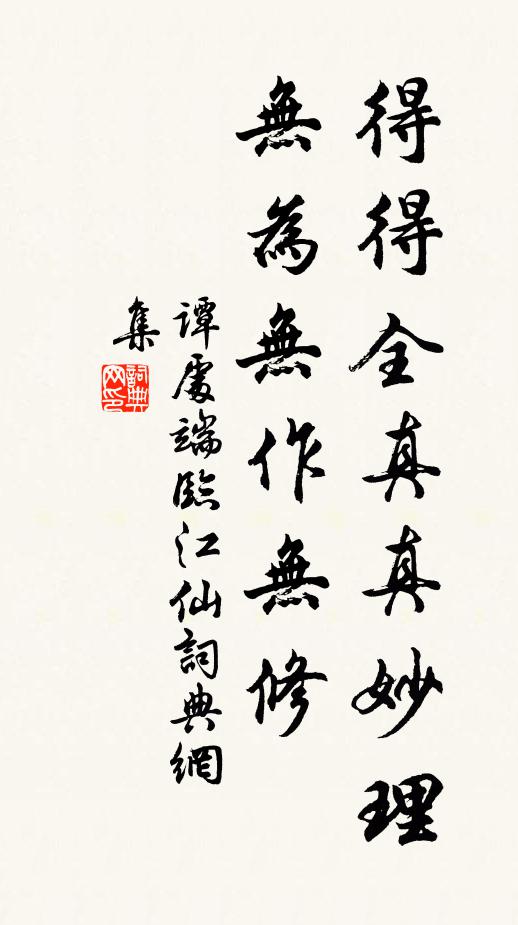 得得全真真妙理
無為無作無修
譚處端臨江仙詞典網
集
詞典
网印